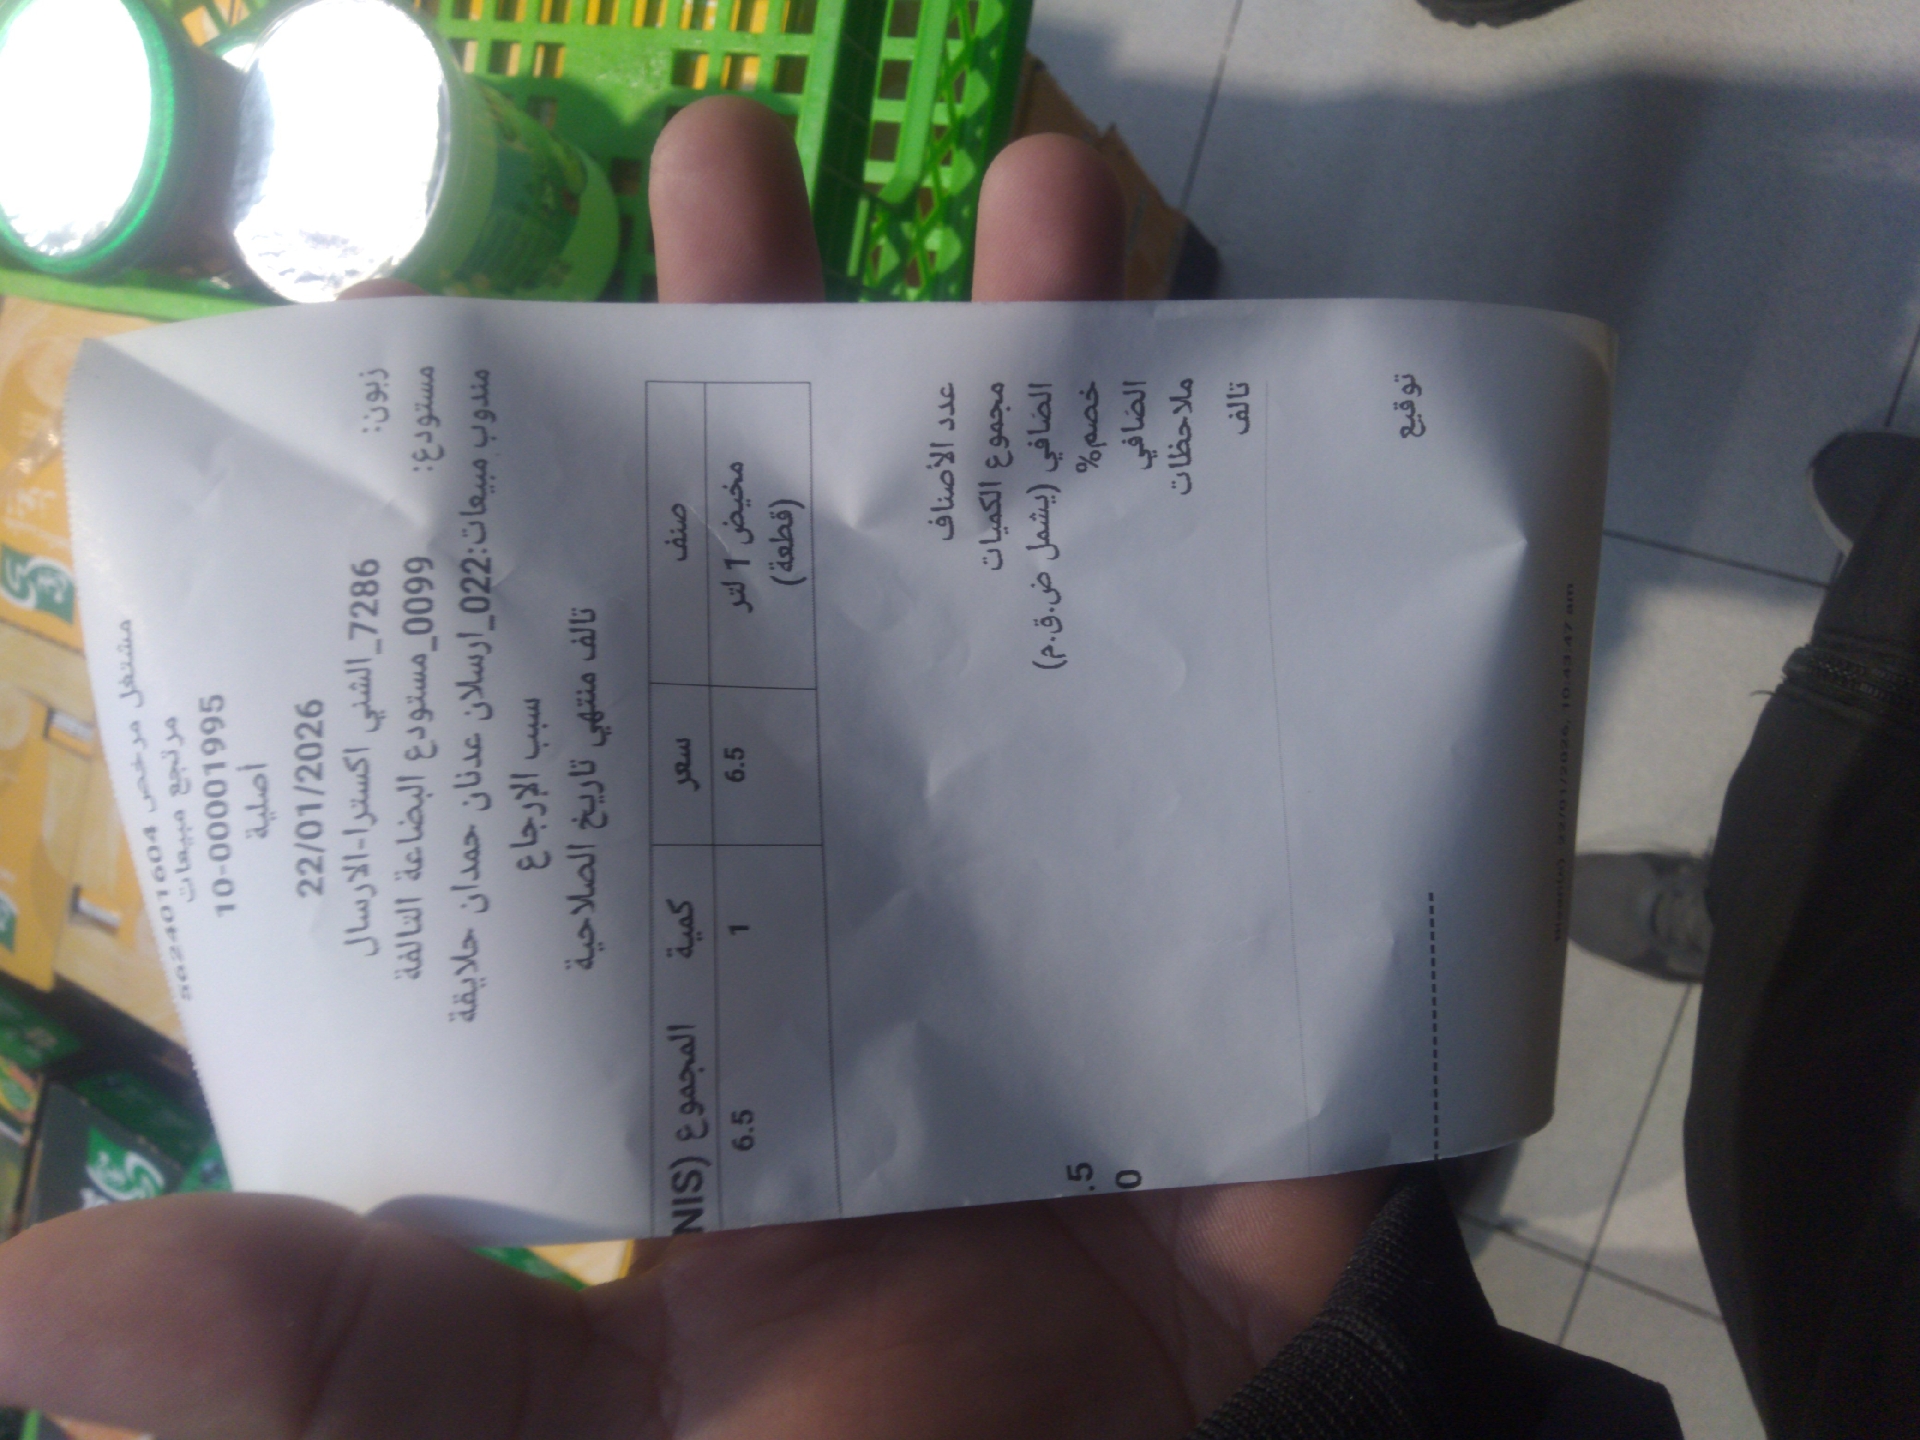 مشتغل مرخص 562401604
مرتجع مبيعات
10-00001995
أصلية
22/01/2026
زبون: 7286_الشني اكسترا-الارسال
مستودع: 0099_مستودع البضاعة التالفة
مندوب مبيعات:022_ارسلان عدنان حمدان حلايقة
سبب الارجاع
تالف منتهي تاريخ الصلاحية
صنف سعر كمية المجموع (NIS
مخيض 1 لتر 6.5 1 6.5
(قطعة)
عدد الأصناف
مجموع الكميات
الصافي (يشمل ض.ق.م)
خصم% .5
الصافي 0
ملاحظات
تالف
توقيع
22/01/2026, 10:43:47 am